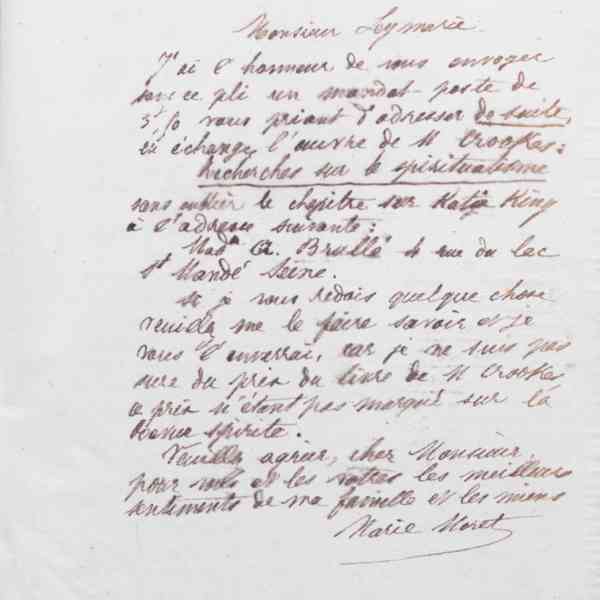 Monsieur Leymarie
J'ai l'honneur de vous envoyer
sous ce pli un mandat-poste de
3f,50 vous priant d'adresser de suite,
en échange, l'œuvre de M Crookes:
Recherches sur le spiritualisme
sans oublier le chapitre sur Katie King
à l'adresse suivante:
Madme A. Brullé 4 rue du lac
St Mandé Seine.
Si je vous redois quelque chose
veuillez me le faire savoir et je
vous l'enverrai, car je ne suis pas
sure du prix du livre de M Crookes,
ce prix n'étant pas marqué sur la
Revue spirite.
Veuillez agréer, cher Monsieur,
pour vous et les vôtres les meilleurs
sentiments de ma famille et les miens
Marie Moret